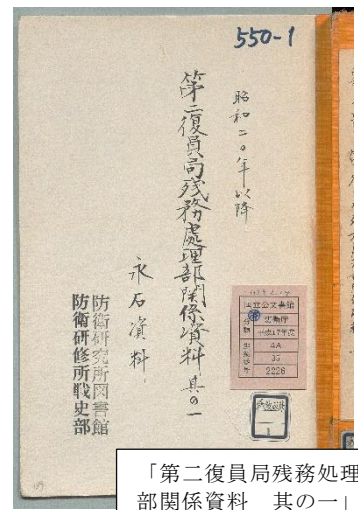 550-1
昭和二〇年以降
第二復員局残務處理部関係資料 其の一
永石資料
防衛研究所図書館
防衛研修所戦史部
国立公文書館
分類
平成17年度
4A
35
2226
「第二復員局残務処理
部関係資料 其の一」